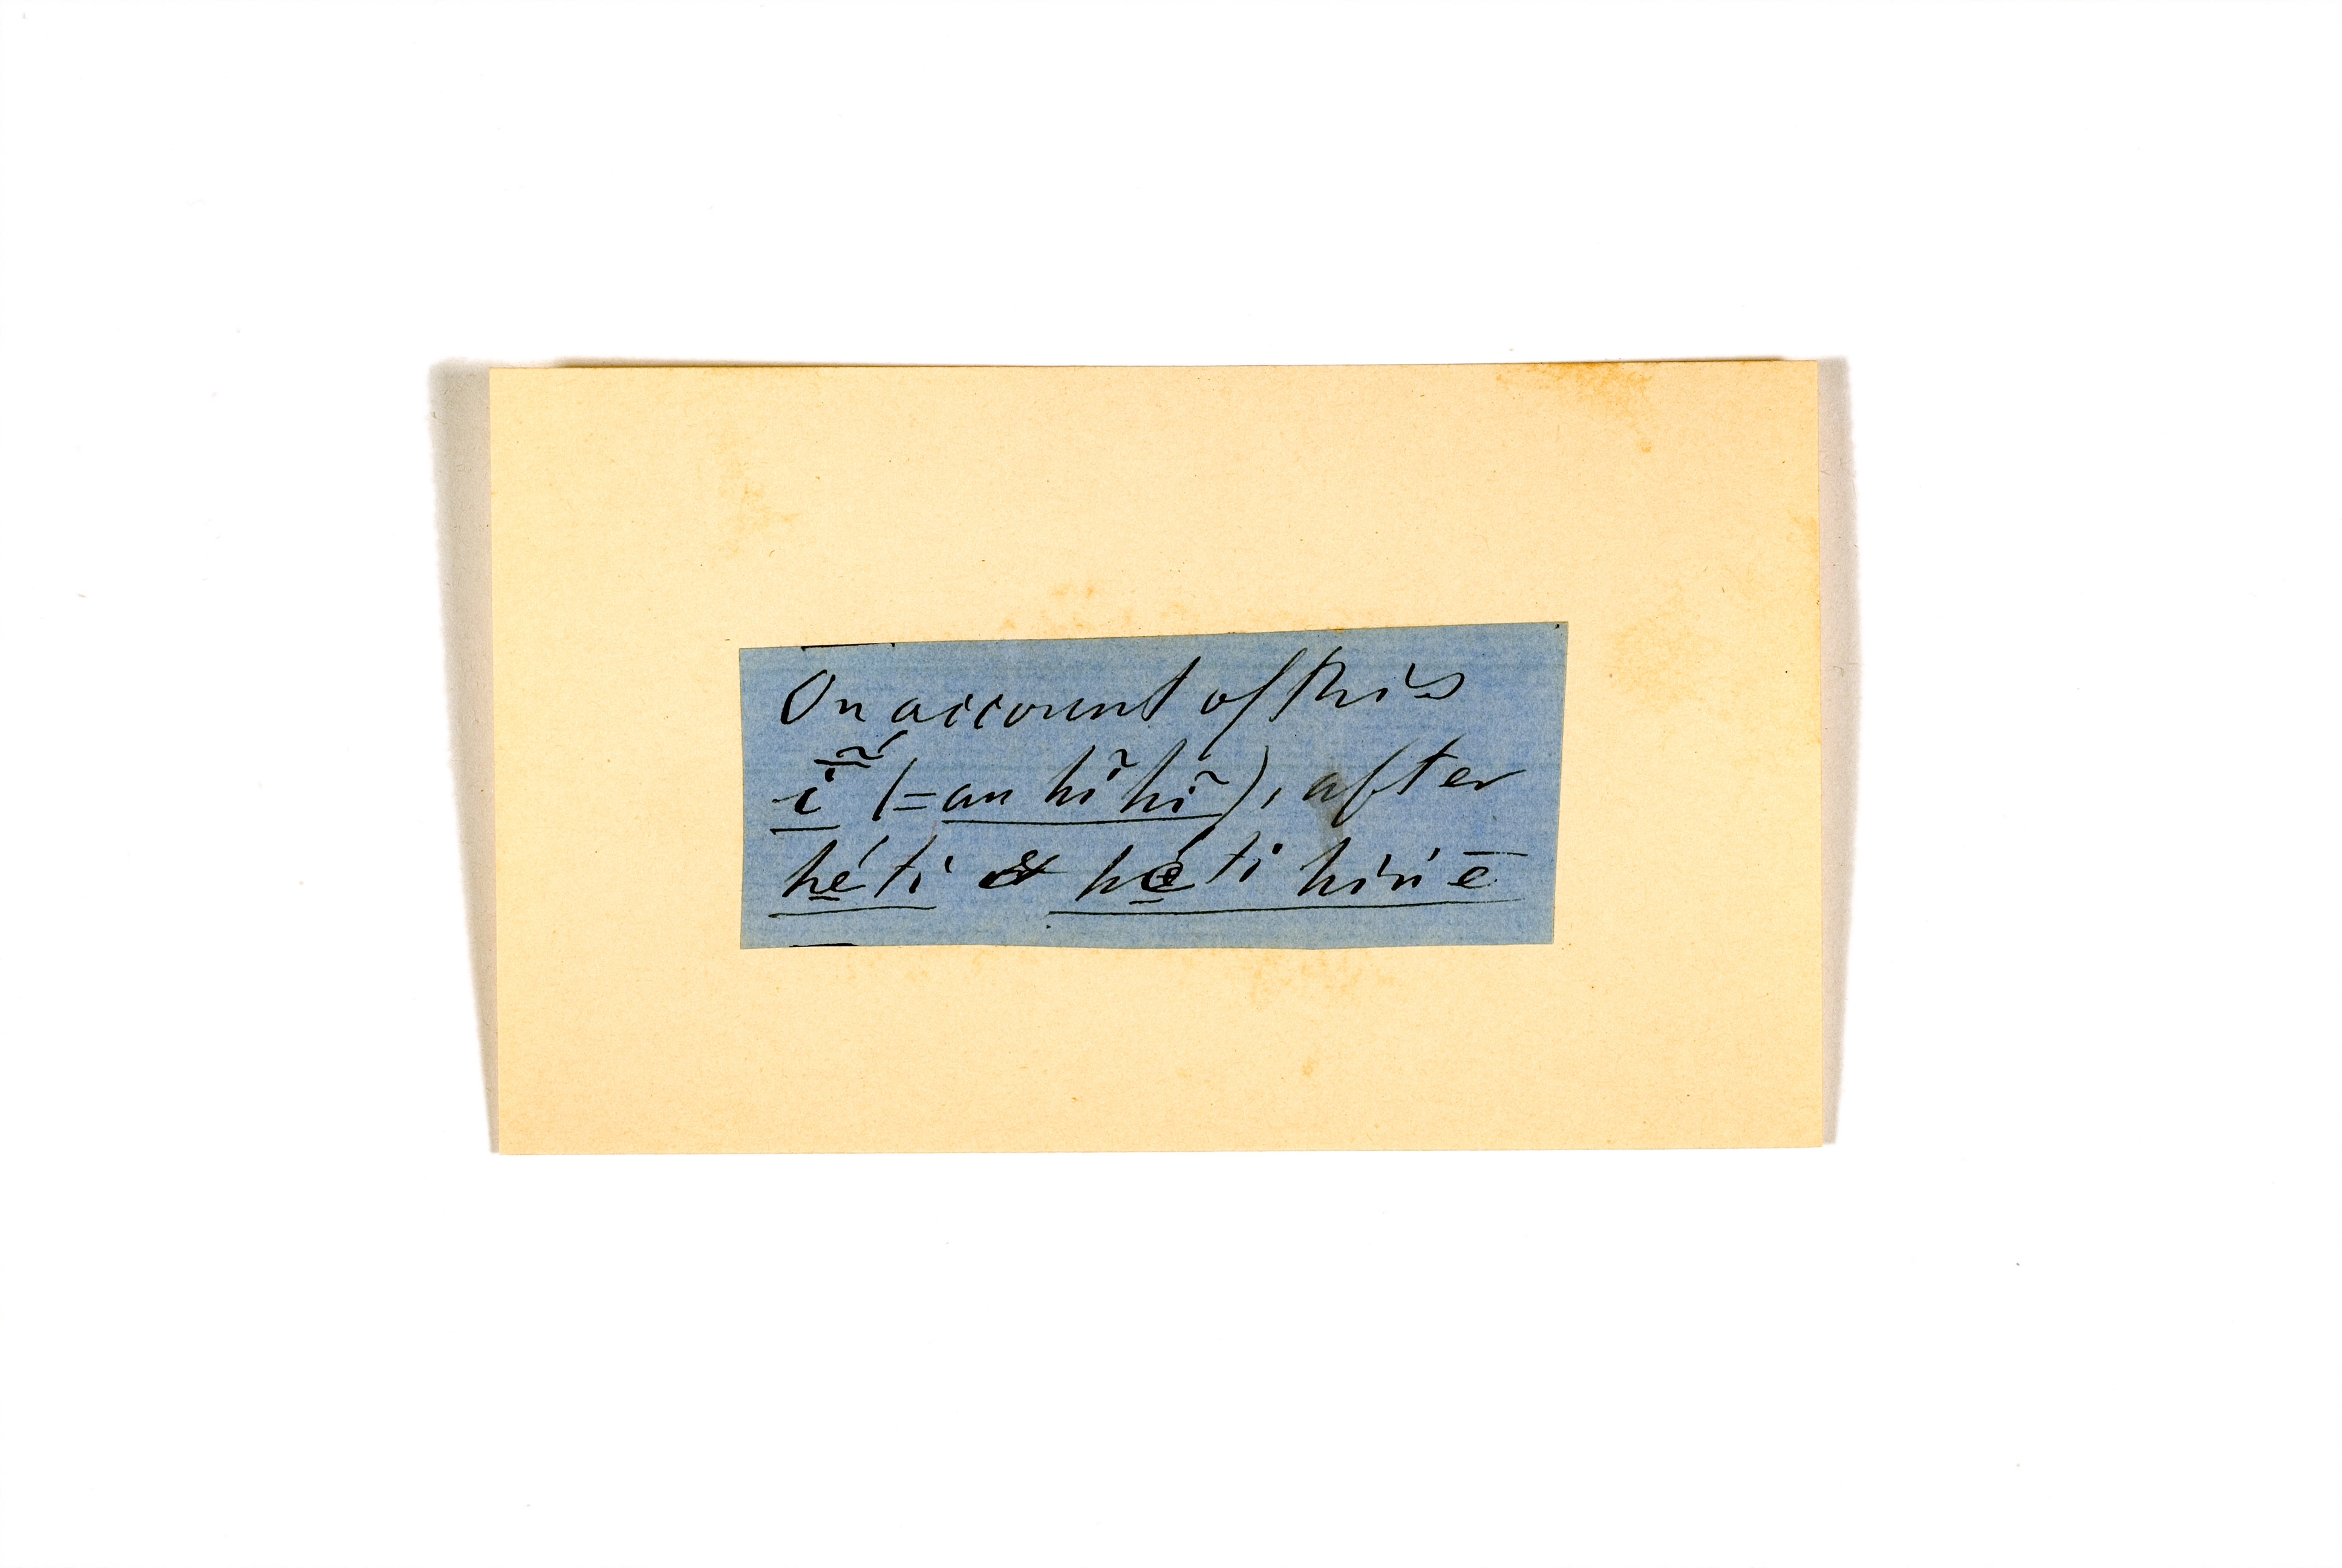 On account of this
ī̃́ (= an hĩ hĩ), after
hé̱ti & hé̱ti híń ē